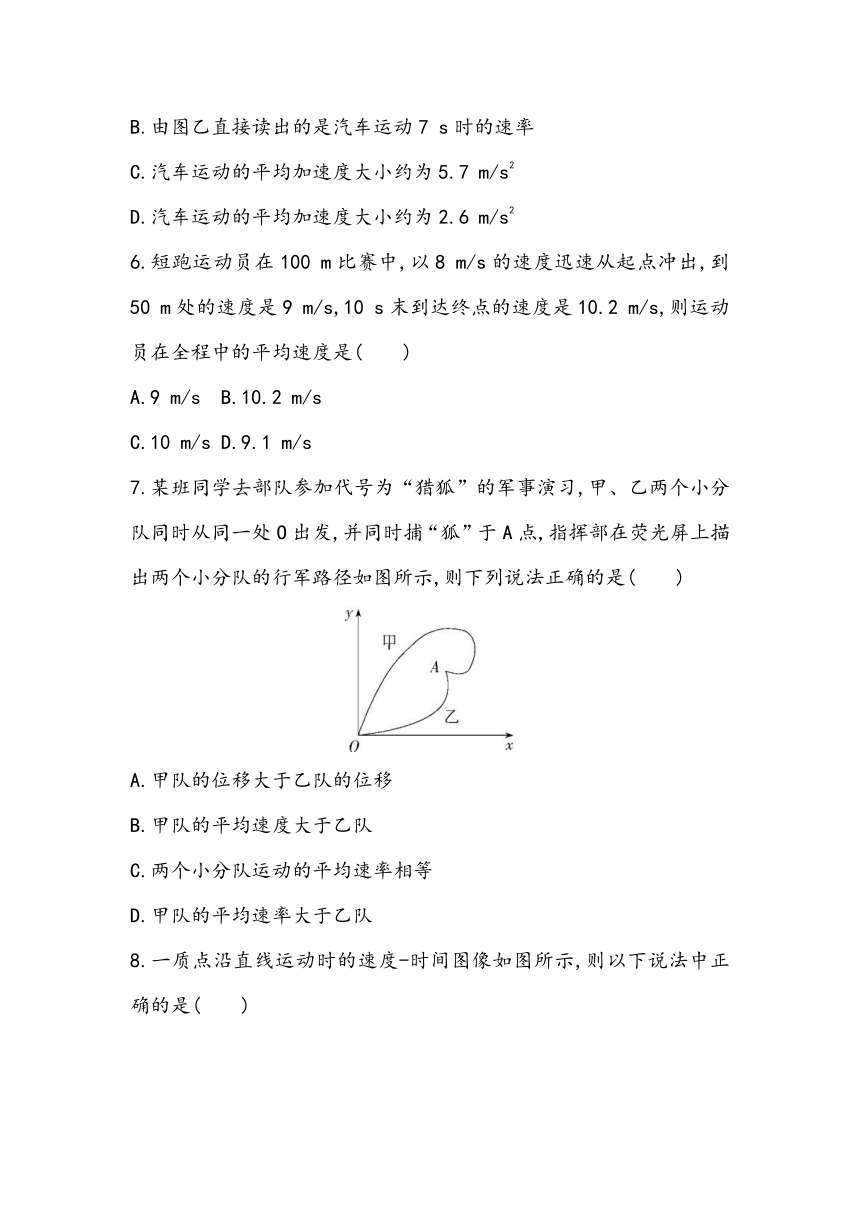 B.由图乙直接读出的是汽车运动7 s时的速率
C.汽车运动的平均加速度大小约为5.7 m/s²
D.汽车运动的平均加速度大小约为2.6 m/s²
6.短跑运动员在100 m比赛中,以8 m/s的速度迅速从起点冲出,到
50 m处的速度是9 m/s,10 s末到达终点的速度是10.2 m/s,则运动
员在全程中的平均速度是(　　)
A.9 m/s B.10.2 m/s
C.10 m/s D.9.1 m/s
7.某班同学去部队参加代号为“猎狐”的军事演习,甲、乙两个小分
队同时从同一处O出发,并同时捕“狐”于A点,指挥部在荧光屏上描
出两个小分队的行军路径如图所示,则下列说法正确的是(　　)
y
甲
A
乙
O
x
A.甲队的位移大于乙队的位移
B.甲队的平均速度大于乙队
C.两个小分队运动的平均速率相等
D.甲队的平均速率大于乙队
8.一质点沿直线运动时的速度-时间图像如图所示,则以下说法中正
确的是(　　)